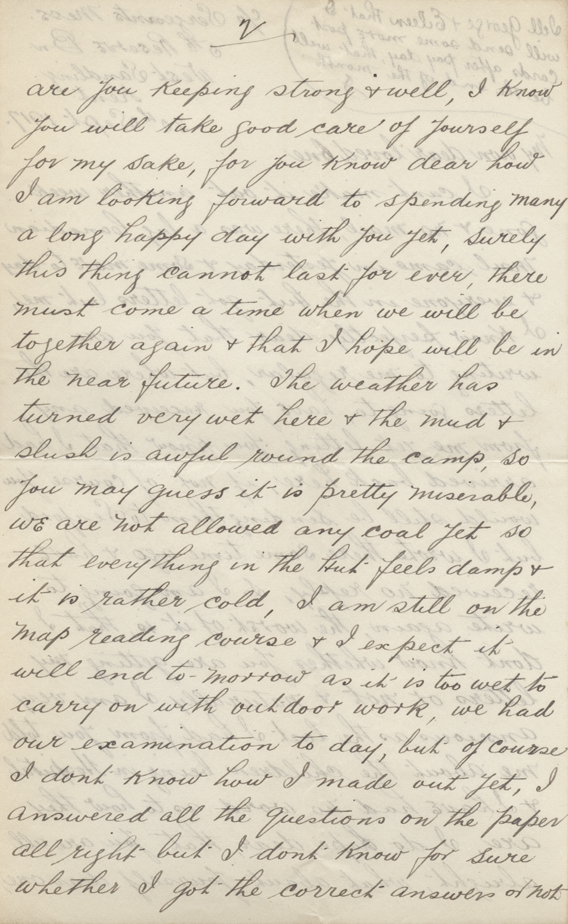 2
are you keeping strong & well, I know
you will take good care of yourself
for my sake, for you know dear how
I am looking forward to spending many
a long happy day with you yet, surely
this thing cannot last for ever, there
must come a time when we will be
together again & that I hope will be in
the near future. The weather has
turned very wet here & the mud &
slush is awful round the camp, so
you may guess it is pretty miserable,
we are not allowed any coal yet so
that everything in the hut feels damp &
it is rather cold, I am still on the
map reading course & I expect it
will end to-morrow as it is too wet to
carry on with outdoor work, we had
our examination to day, but of course
I dont know how I made out yet, I
answered all the questions on the paper
all right but I dont know for sure
whether I got the correct answers or not